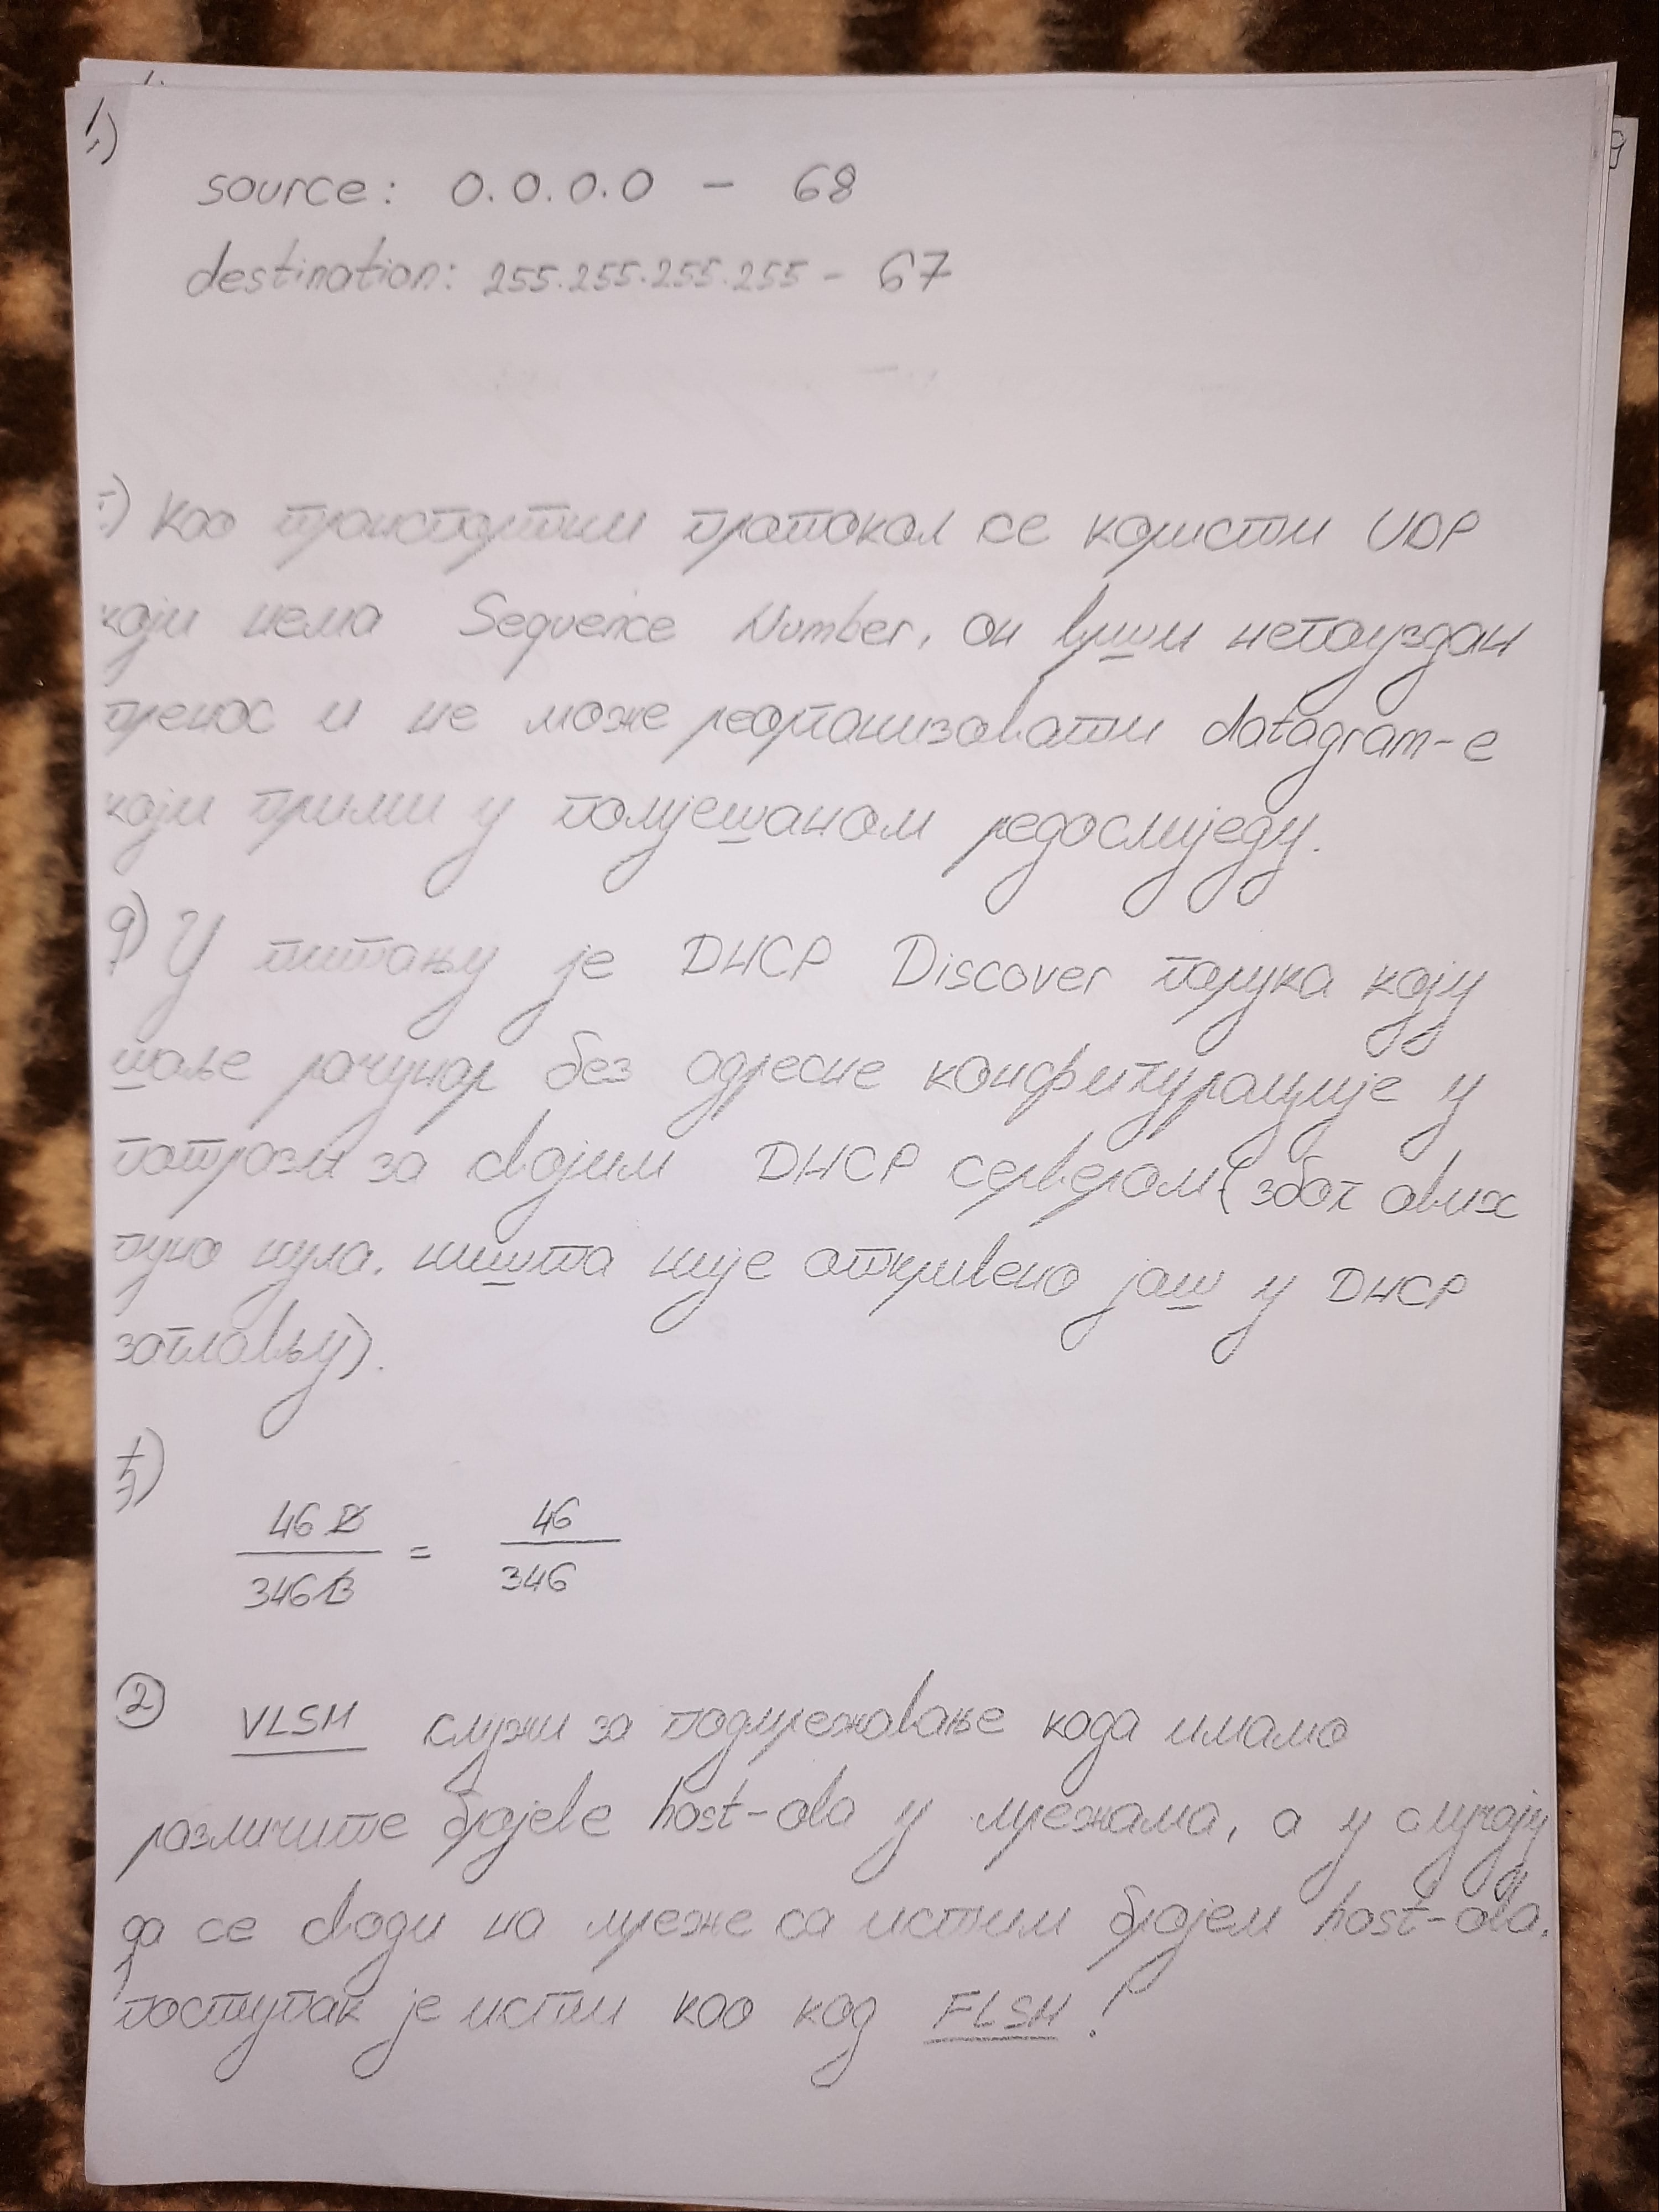 source: 0.0.0.0 - 68
destination: 255.255.255.255 - 67
Као транспортни протокол се користи UDP
који нема Sequence Number, он врши непоуздан
пренос и не може реорганизовати datagram-е
који прими у помјешаном редослиједу.
д) У питању је DHCP Discover порука коју
шаље рачунар без адресне конфигурације у
потрази за својим DHCP сервером (због ових
пуно нула, ништа није откривено још у DHCP
заглављу).
ђ)
46 B / 346 B = 46 / 346
② VLSM служи за подмрежавање када имамо
различите бројеве host-ова у мрежама, а у случају
да се своди на мреже са истим бројем host-ова,
поступак је исти као код FLSM!